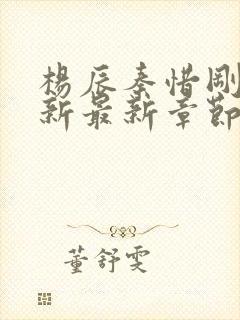 楊辰秦惜剛
新最新章節
董舒雯